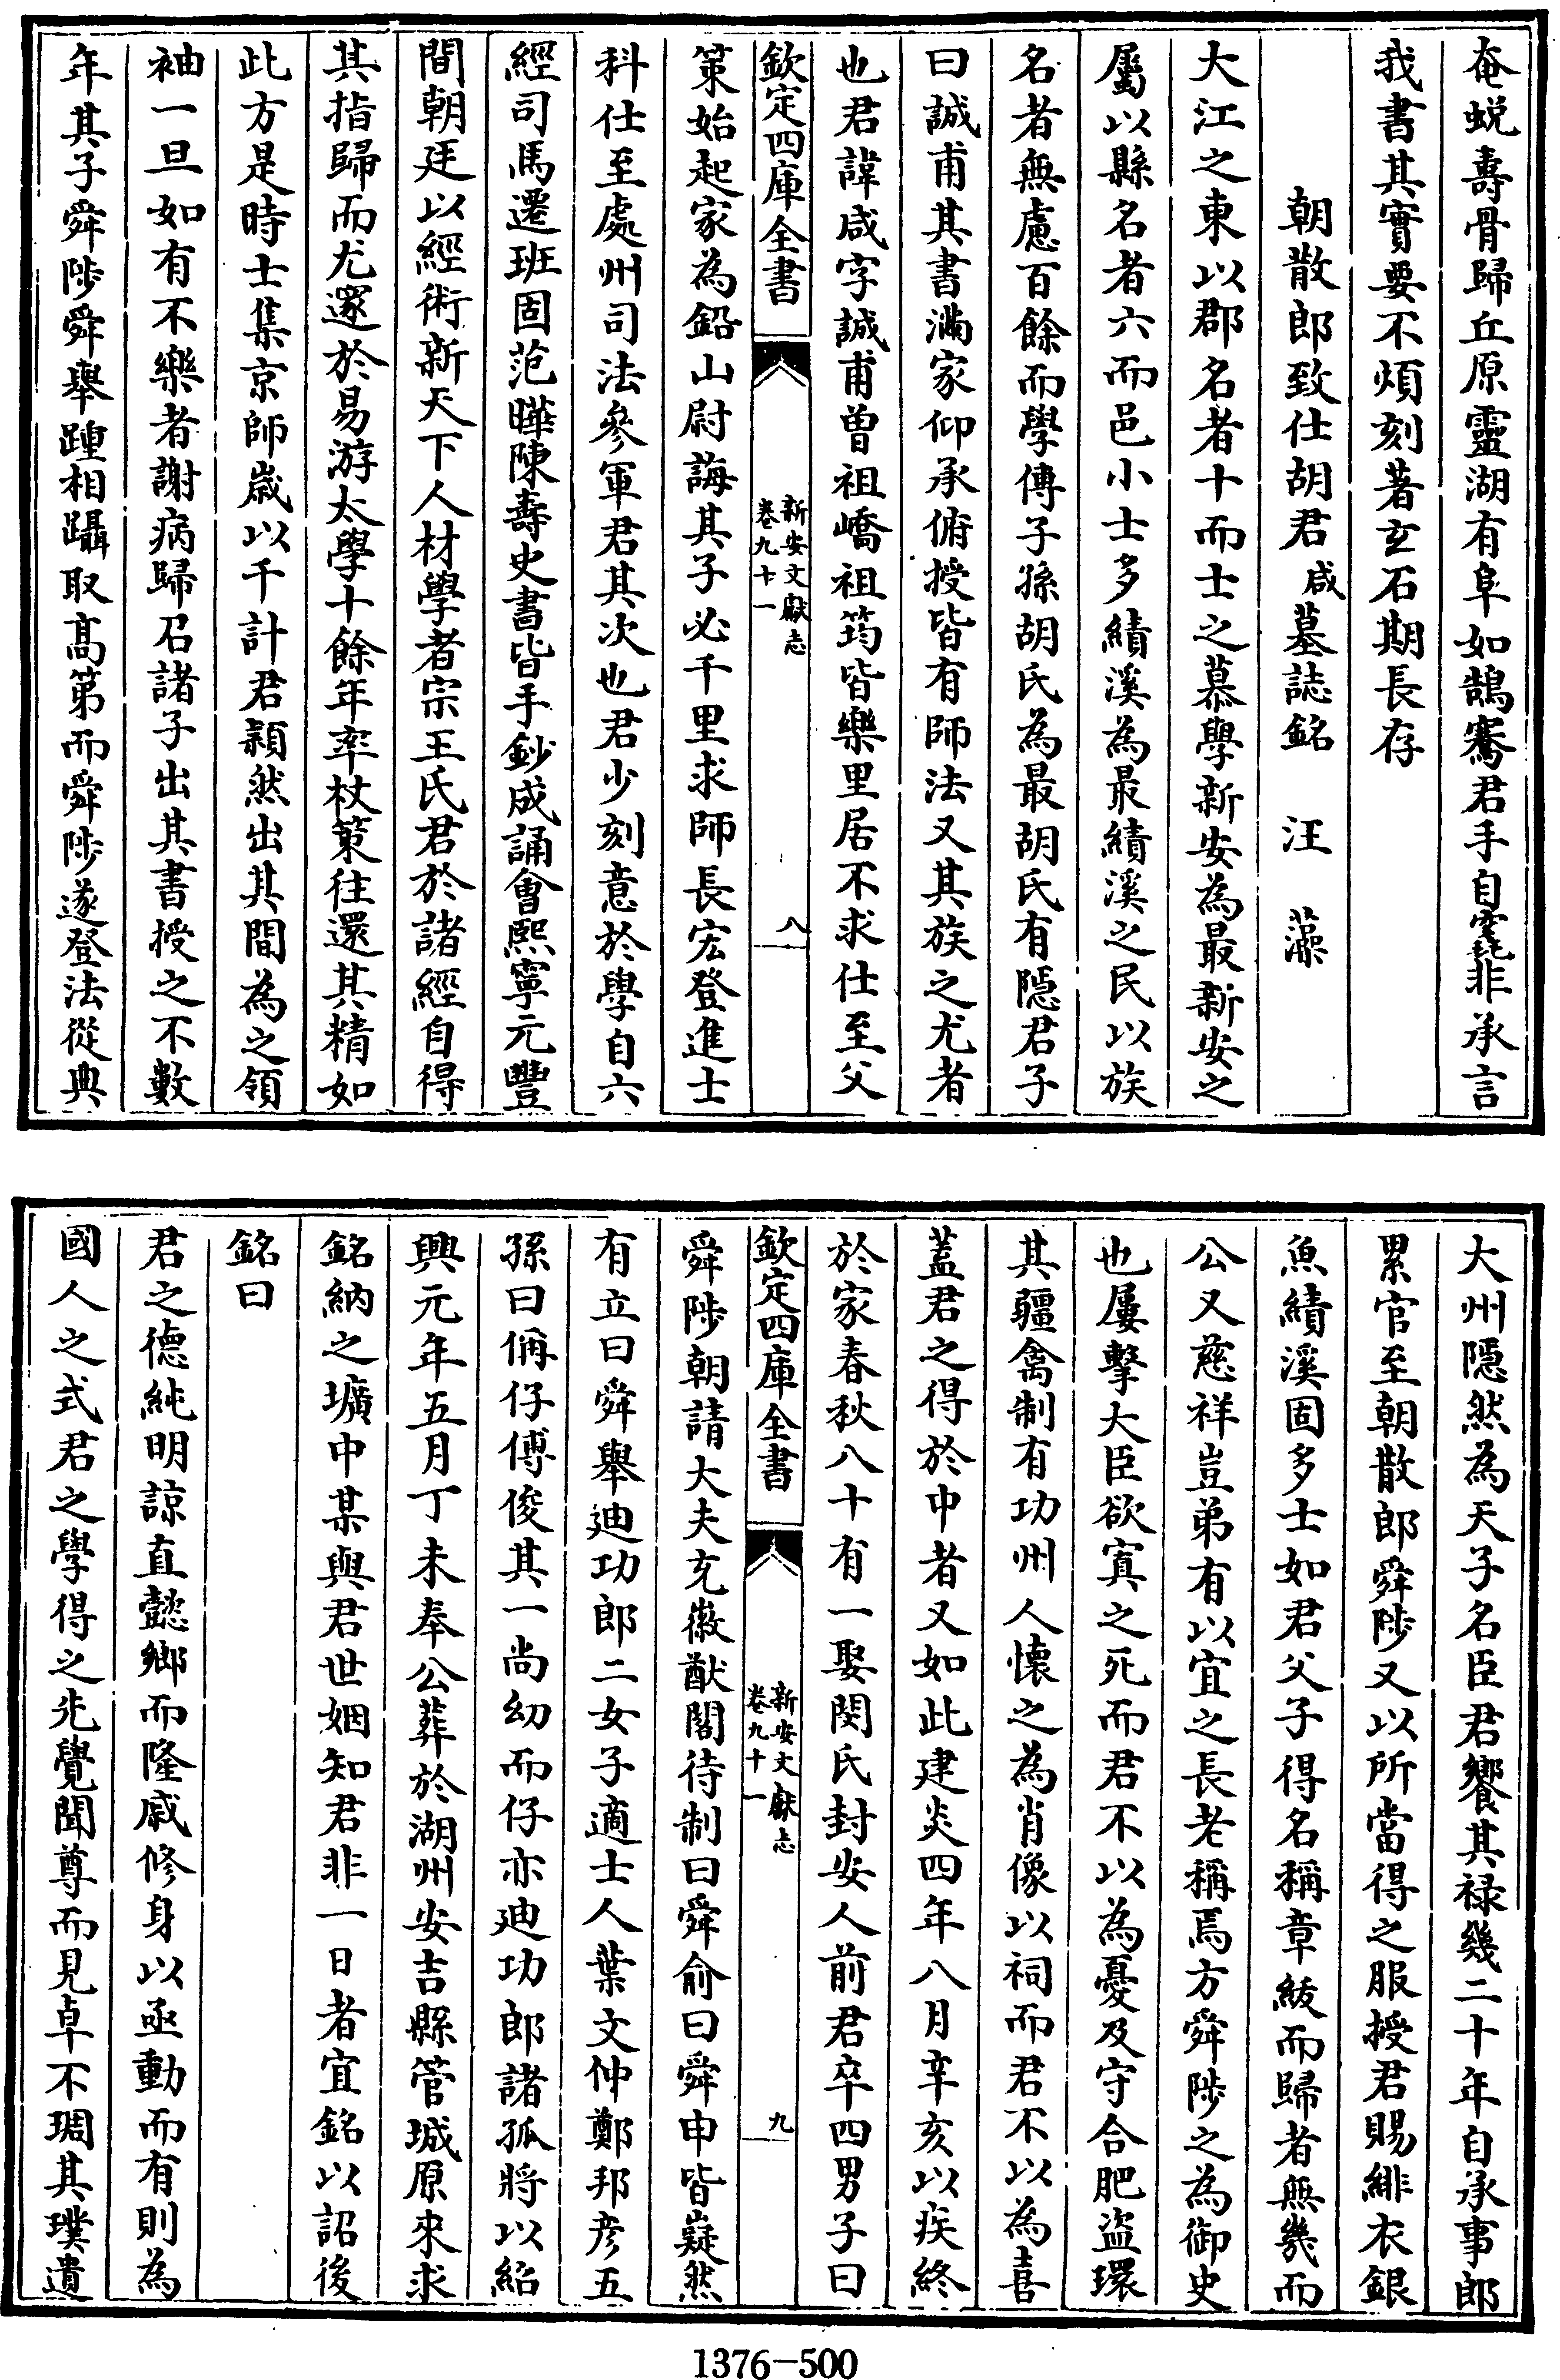 奄蜕壽骨歸丘原靈湖有阜如鵠騫君手自窆非承言
我書其實要不煩刻著玄石期長存
朝散郎致仕胡君咸墓誌銘 汪藻
大江之東以郡名者十而士之慕學新安為最新安之
屬以縣名者六而邑小士多績溪為最績溪之民以族
名者無慮百餘而學傳子孫胡氏為最胡氏有隱君子
曰誠甫其書滿家仰承俯授皆有師法又其族之尤者
也君諱咸字誠甫曾祖嶠祖筠皆樂里居不求仕至父
欽定四庫全書 新安文獻志 卷九十一 八
策始起家為鉛山尉誨其子必千里求師長宏登進士
科仕至處州司法參軍君其次也君少刻意於學自六
經司馬遷班固范曄陳壽史書皆手鈔成誦會熙寧元豐
間朝廷以經術新天下人材學者宗王氏君於諸經自得
其指歸而尤邃於易游太學十餘年率杖策往還其精如
此方是時士集京師歲以千計君穎然出其間為之領
袖一旦如有不樂者謝病歸召諸子出其書授之不數
年其子舜陟舜舉踵相躡取高第而舜陟遂登法從典
大州隱然為天子名臣君饗其禄幾二十年自承事郎
累官至朝散郎舜陟又以所當得之服授君賜緋衣銀
魚績溪固多士如君父子得名稱章綬而歸者無幾而
公又慈祥豈弟有以宜之長老稱焉方舜陟之為御史
也屢擊大臣欲寘之死而君不以為憂及守合肥盜環
其疆禽制有功州人懷之為肖像以祠而君不以為喜
蓋君之得於中者又如此建炎四年八月辛亥以疾終
於家春秋八十有一娶閔氏封安人前君卒四男子曰
欽定四庫全書 新安文獻志 卷九十一 九
舜陟朝請大夫充徽猷閣待制曰舜俞曰舜申皆嶷然
有立曰舜舉廸功郎二女子適士人葉文仲鄭邦彦五
孫曰偁仔傅俊其一尚幼而仔亦廸功郎諸孤將以紹
興元年五月丁未奉公葬於湖州安吉縣管城原來求
銘納之壙中某與君世姻知君非一日者宜銘以詔後
銘曰
君之德純明諒直懿鄉而隆戚修身以亟動而有則為
國人之式君之學得之先覺聞尊而見卓不琱其璞遺
1376-500